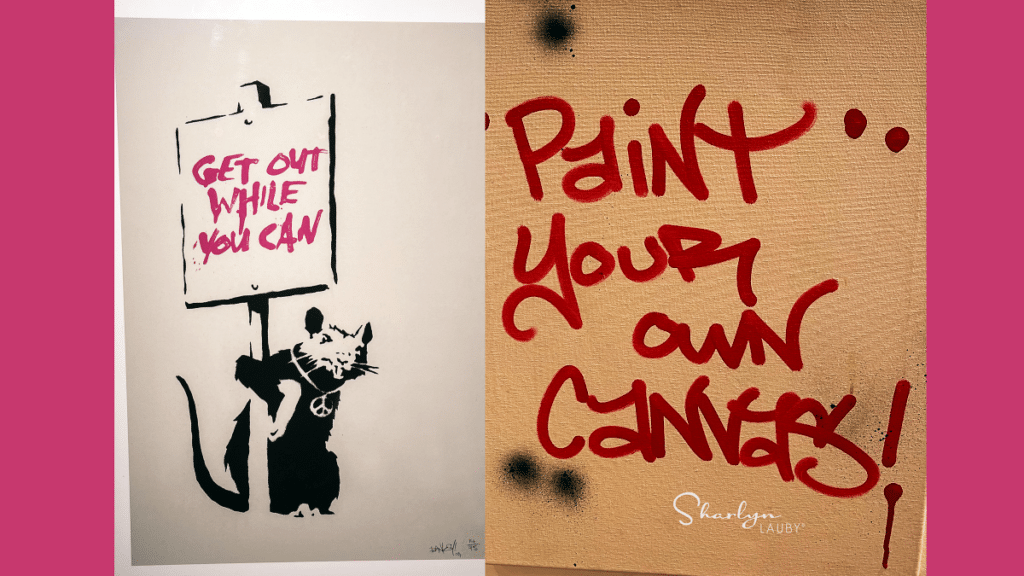 GET OUT
WHILE
YOU CAN
"Paint ..
YOUR
OWN
CANVAS!
Sharlyn
LAUBY®